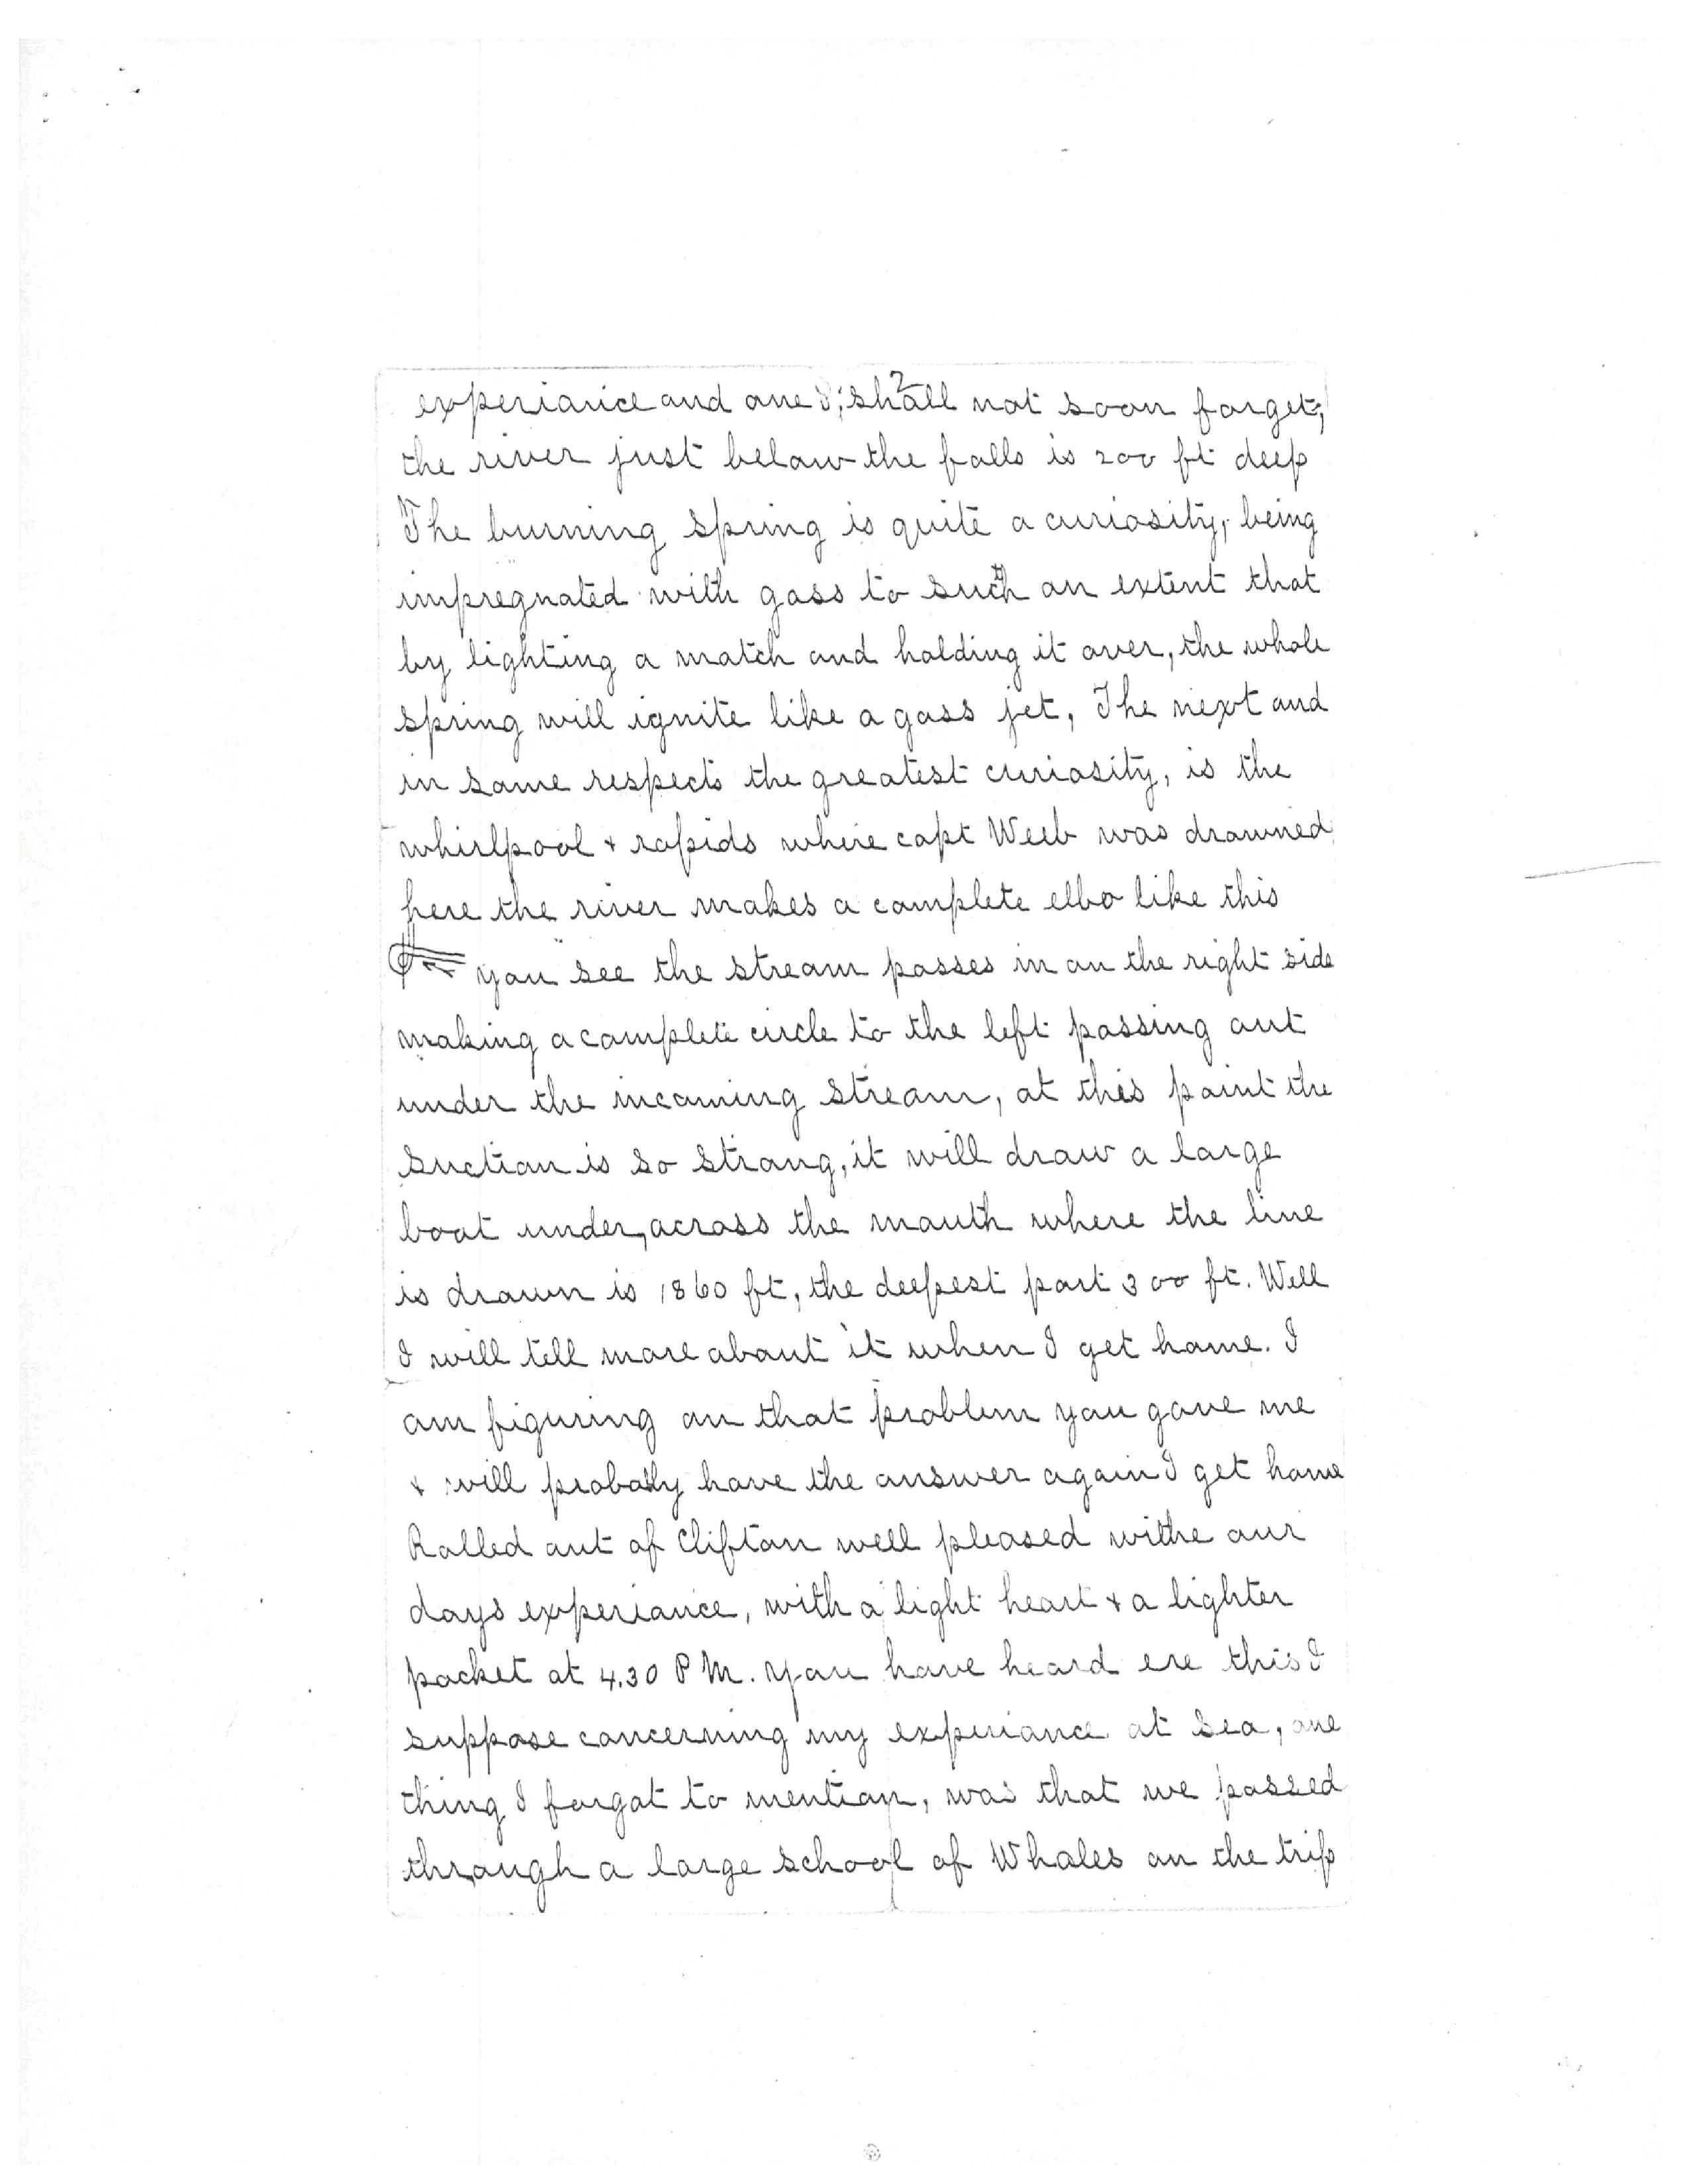 2
experiance and one I shall not soon forget,
the river just below the falls is 200 ft deep
The burning spring is quite a curiosity, being
impregnated with gass to such an extent that
by lighting a match and holding it over, the whole
spring will ignite like a gass jet, The next and
in some respects the greatest curiosity, is the
whirlpool + rapids where capt Weeb was drowned
here the river makes a complete elbo like this
you see the stream passes in on the right side
making a complete circle to the left passing out
under the incoming stream, at this point the
suction is so strong, it will draw a large
boat under, across the mouth where the line
is drawn is 1860 ft, the deepest part 300 ft. Well
I will tell more about it when I get home. I
am figuring on that problem you gave me
+ will probably have the answer again I get home
Rolled out of Clifton well pleased withe our
days experiance, with a light heart + a lighter
pocket at 4.30 P M. you have heard ere this I
suppose concerning my experiance at sea, one
thing I forgot to mention, was that we passed
through a large school of Whales on the trip